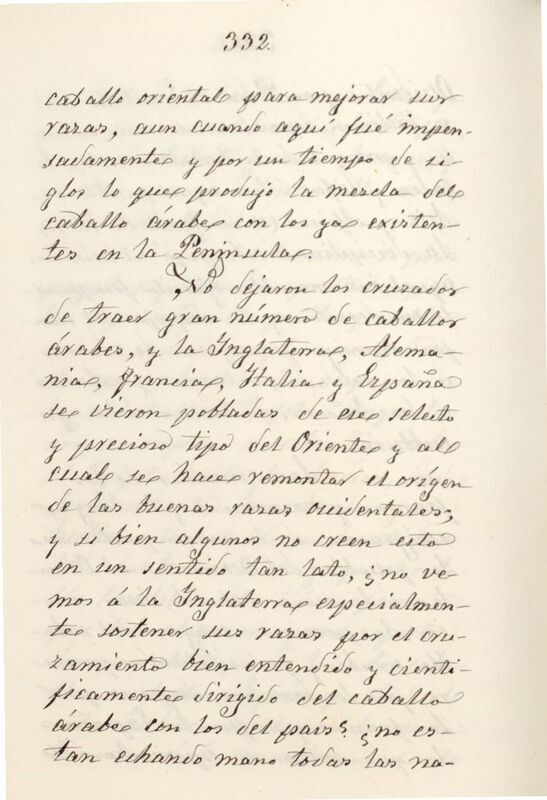 332.
caballo oriental para mejorar sus
razas, aun cuando aquí fué impen-
sadamente y por un tiempo de si-
glos lo que produjo la mezcla del
caballo árabe con los ya existen-
tes en la Península.
No dejaron los cruzados
de traer gran número de caballos
árabes, y la Inglaterra, Alema-
nia, Francia, Italia y España
se vieron pobladas de ese selecto
y precioso tipo del Oriente y al
cual se hace remontar el orígen
de las buenas razas occidentales;
y si bien algunos no creen esto
en un sentido tan lato, ¿no ve-
mos á la Inglaterra especialmen-
te sostener sus razas por el cru-
zamiento bien entendido y cientí-
ficamente dirigido del caballo
árabe con los del país? ¿no es-
tan echando mano todas las na-